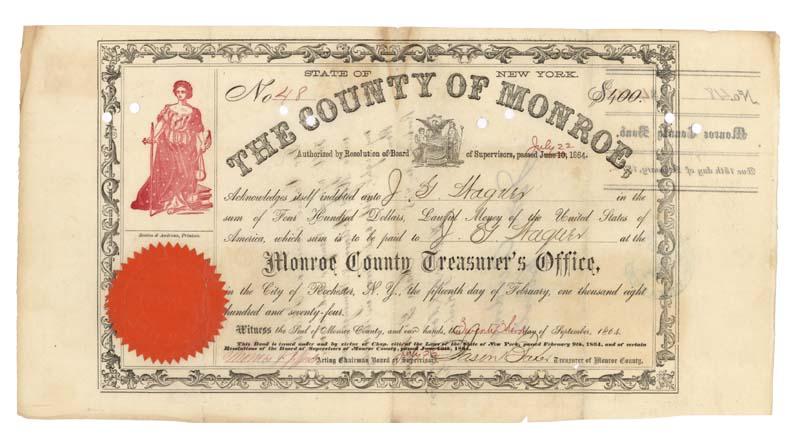 STATE OF NEW YORK.
No 48 $400.
THE COUNTY OF MONROE,
July 22
Authorized by Resolution of Board of Supervisors, passed June 10, 1864.
Acknowledges itself indebted unto J G Wagner in the
sum of Four Hundred Dollars, Lawful Money of the United States of
America, which sum is to be paid to J. G Wagner at the
Monroe County Treasurer's Office,
in the City of Rochester, N. Y., the fifteenth day of February, one thousand eight
hundred and seventy-four.
Witness the Seal of Monroe County, and our hands, the day of September, 1864.
This Bond is issued under and by virtue of Chap. of the Laws of the State of New York, passed February 9th, 1864, and of certain
Resolutions of the Board of Supervisors of Monroe County, passed 1864.
July 22
Acting Chairman Board of Supervisors. Jason Baker Treasurer of Monroe County.
Benton & Andrews, Printers.
No. 48
Monroe County Bond.
Due 15th day of February,